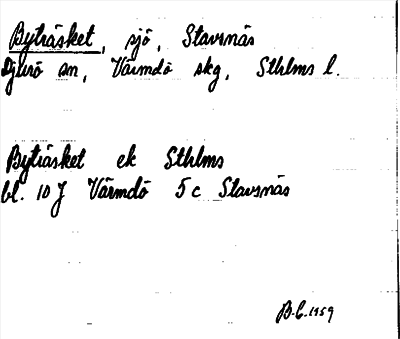 Byträsket, sjö, Stavsnäs
Djurö sn, Värmdö skg, Sthlms l.
Byträsket ek Sthlms
bl. 10 J Värmdö 5 c Stavsnäs
B.C. 1959